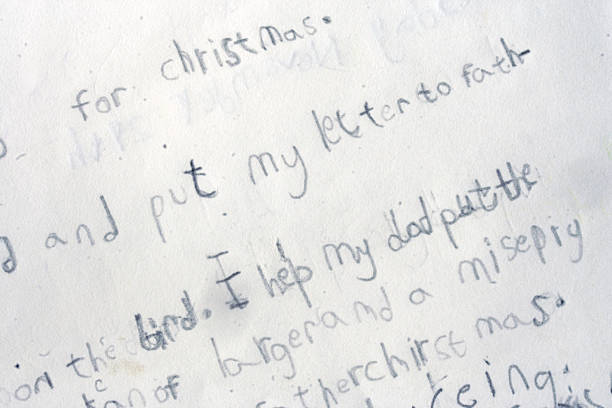 for christmas.
and put my letter to fath
on the bind. I help my dad put the
can of larger and a misepiy
therchirstmas.